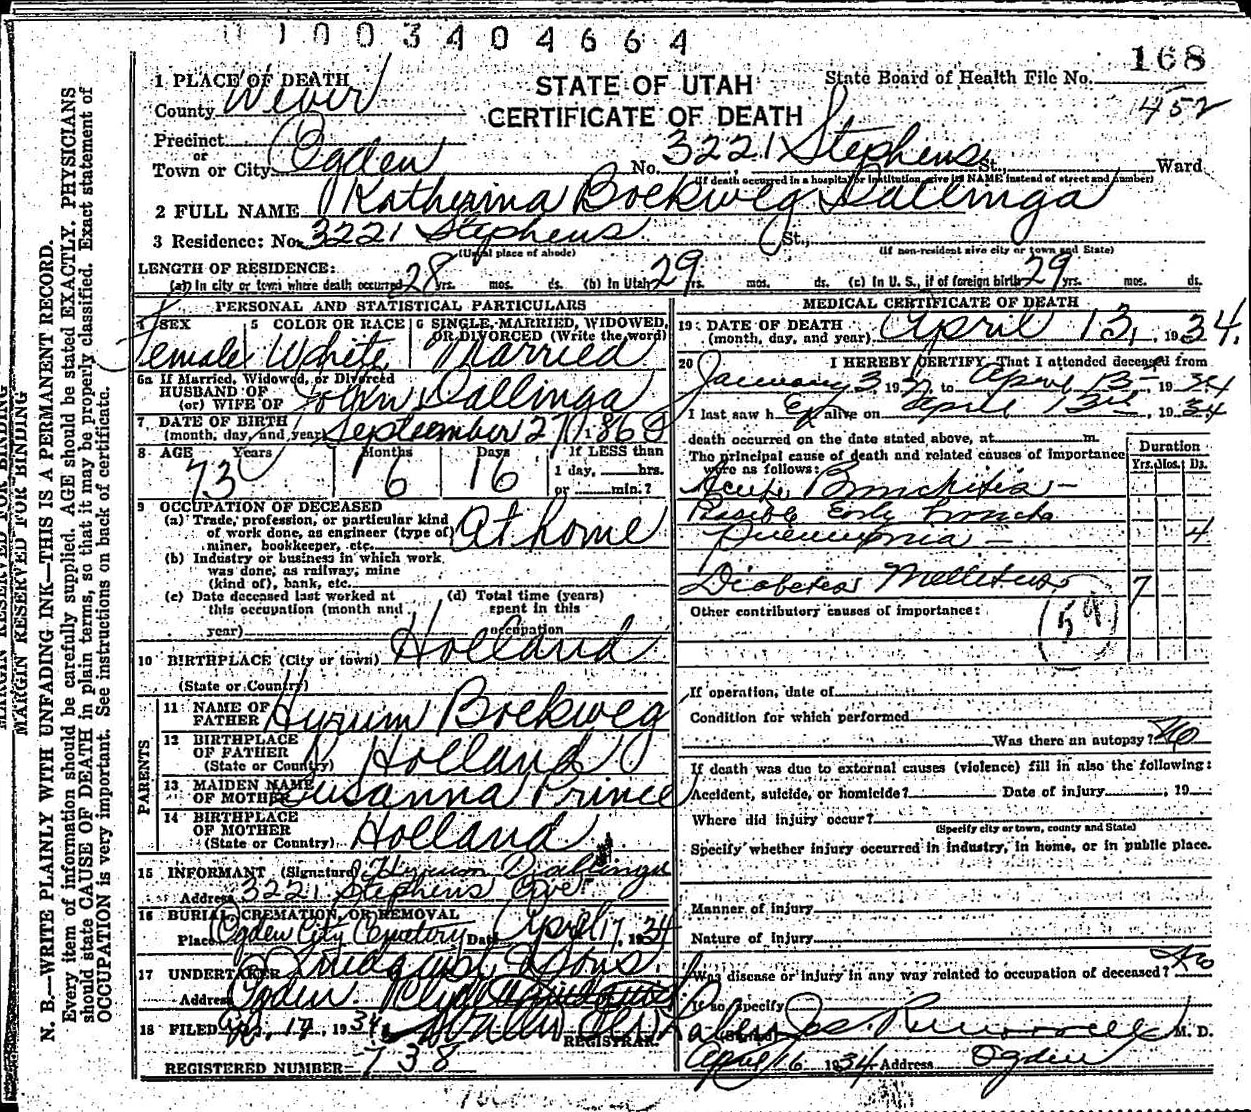 11003404664
168
1 PLACE OF DEATH
STATE OF UTAH
State Board of Health File No.
County Weber
CERTIFICATE OF DEATH
452
Precinct
or
Town or City Ogden No. 3221 Stephens St., Ward
(If death occurred in a hospital or institution, give its NAME instead of street and number)
2 FULL NAME Katherina Boekweg Dallinga
3 Residence: No. 3221 Stephens St.,
(Usual place of abode) (If non-resident give city or town and State)
LENGTH OF RESIDENCE:
(a) In city or town where death occurred 28 yrs. mos. ds. (b) In Utah 29 yrs. mos. ds. (c) In U. S., if of foreign birth 29 yrs. mos. ds.
PERSONAL AND STATISTICAL PARTICULARS
4 SEX 5 COLOR OR RACE 6 SINGLE, MARRIED, WIDOWED, OR DIVORCED (Write the word)
Female White Married
6a If Married, Widowed, or Divorced
HUSBAND OF
(or) WIFE OF John Dallinga
7 DATE OF BIRTH
(month, day, and year) September 27, 1860
8 AGE Years Months Days If LESS than
1 day, hrs.
or min.?
73 6 16
9 OCCUPATION OF DECEASED
(a) Trade, profession, or particular kind
of work done, as engineer (type of)
miner, bookkeeper, etc. At home
(b) Industry or business in which work
was done, as railway, mine
(kind of), bank, etc.
(c) Date deceased last worked at
this occupation (month and
year)
(d) Total time (years)
spent in this
occupation
10 BIRTHPLACE (City or town) Holland
(State or Country)
PARENTS
11 NAME OF
FATHER Hyrum Boekweg
12 BIRTHPLACE
OF FATHER
(State or Country) Holland
13 MAIDEN NAME
OF MOTHER Susanna Prince
14 BIRTHPLACE
OF MOTHER
(State or Country) Holland
15 INFORMANT (Signature) Hyrum Dallinga
Address 3221 Stephens Ave
16 BURIAL, CREMATION, OR REMOVAL
Place Ogden City Cemetery Date April 17, 1934
17 UNDERTAKER Lindquist & Sons
Address Ogden
18 FILED 17, 1934
REGISTRAR
REGISTERED NUMBER 738
MEDICAL CERTIFICATE OF DEATH
19 DATE OF DEATH
(month, day, and year) April 13, 1934.
20 I HEREBY CERTIFY, That I attended deceased from
January 3 193 to April 13 1934
I last saw her alive on April 13 1934
death occurred on the date stated above, at m.
The principal cause of death and related causes of importance
were as follows:
Duration
Yrs. Mos. Ds.
Acute Bronchitis -
Possible Early Broncho
Pneumonia - 4
Diabetes Mellitus 7
Other contributory causes of importance:
59
If operation, date of
Condition for which performed
Was there an autopsy? No
If death was due to external causes (violence) fill in also the following:
Accident, suicide, or homicide? Date of injury , 19
Where did injury occur?
(Specify city or town, county and State)
Specify whether injury occurred in industry, in home, or in public place.
Manner of injury
Nature of injury
Was disease or injury in any way related to occupation of deceased? No
If so, specify
(Signed) M. D.
April 16 1934 Address Ogden
MARGIN RESERVED FOR BINDING
MARGIN RESERVED FOR BINDING
N. B.—WRITE PLAINLY WITH UNFADING INK—THIS IS A PERMANENT RECORD.
Every item of information should be carefully supplied. AGE should be stated EXACTLY. PHYSICIANS
should state CAUSE OF DEATH in plain terms, so that it may be properly classified. Exact statement of
OCCUPATION is very important. See instructions on back of certificate.